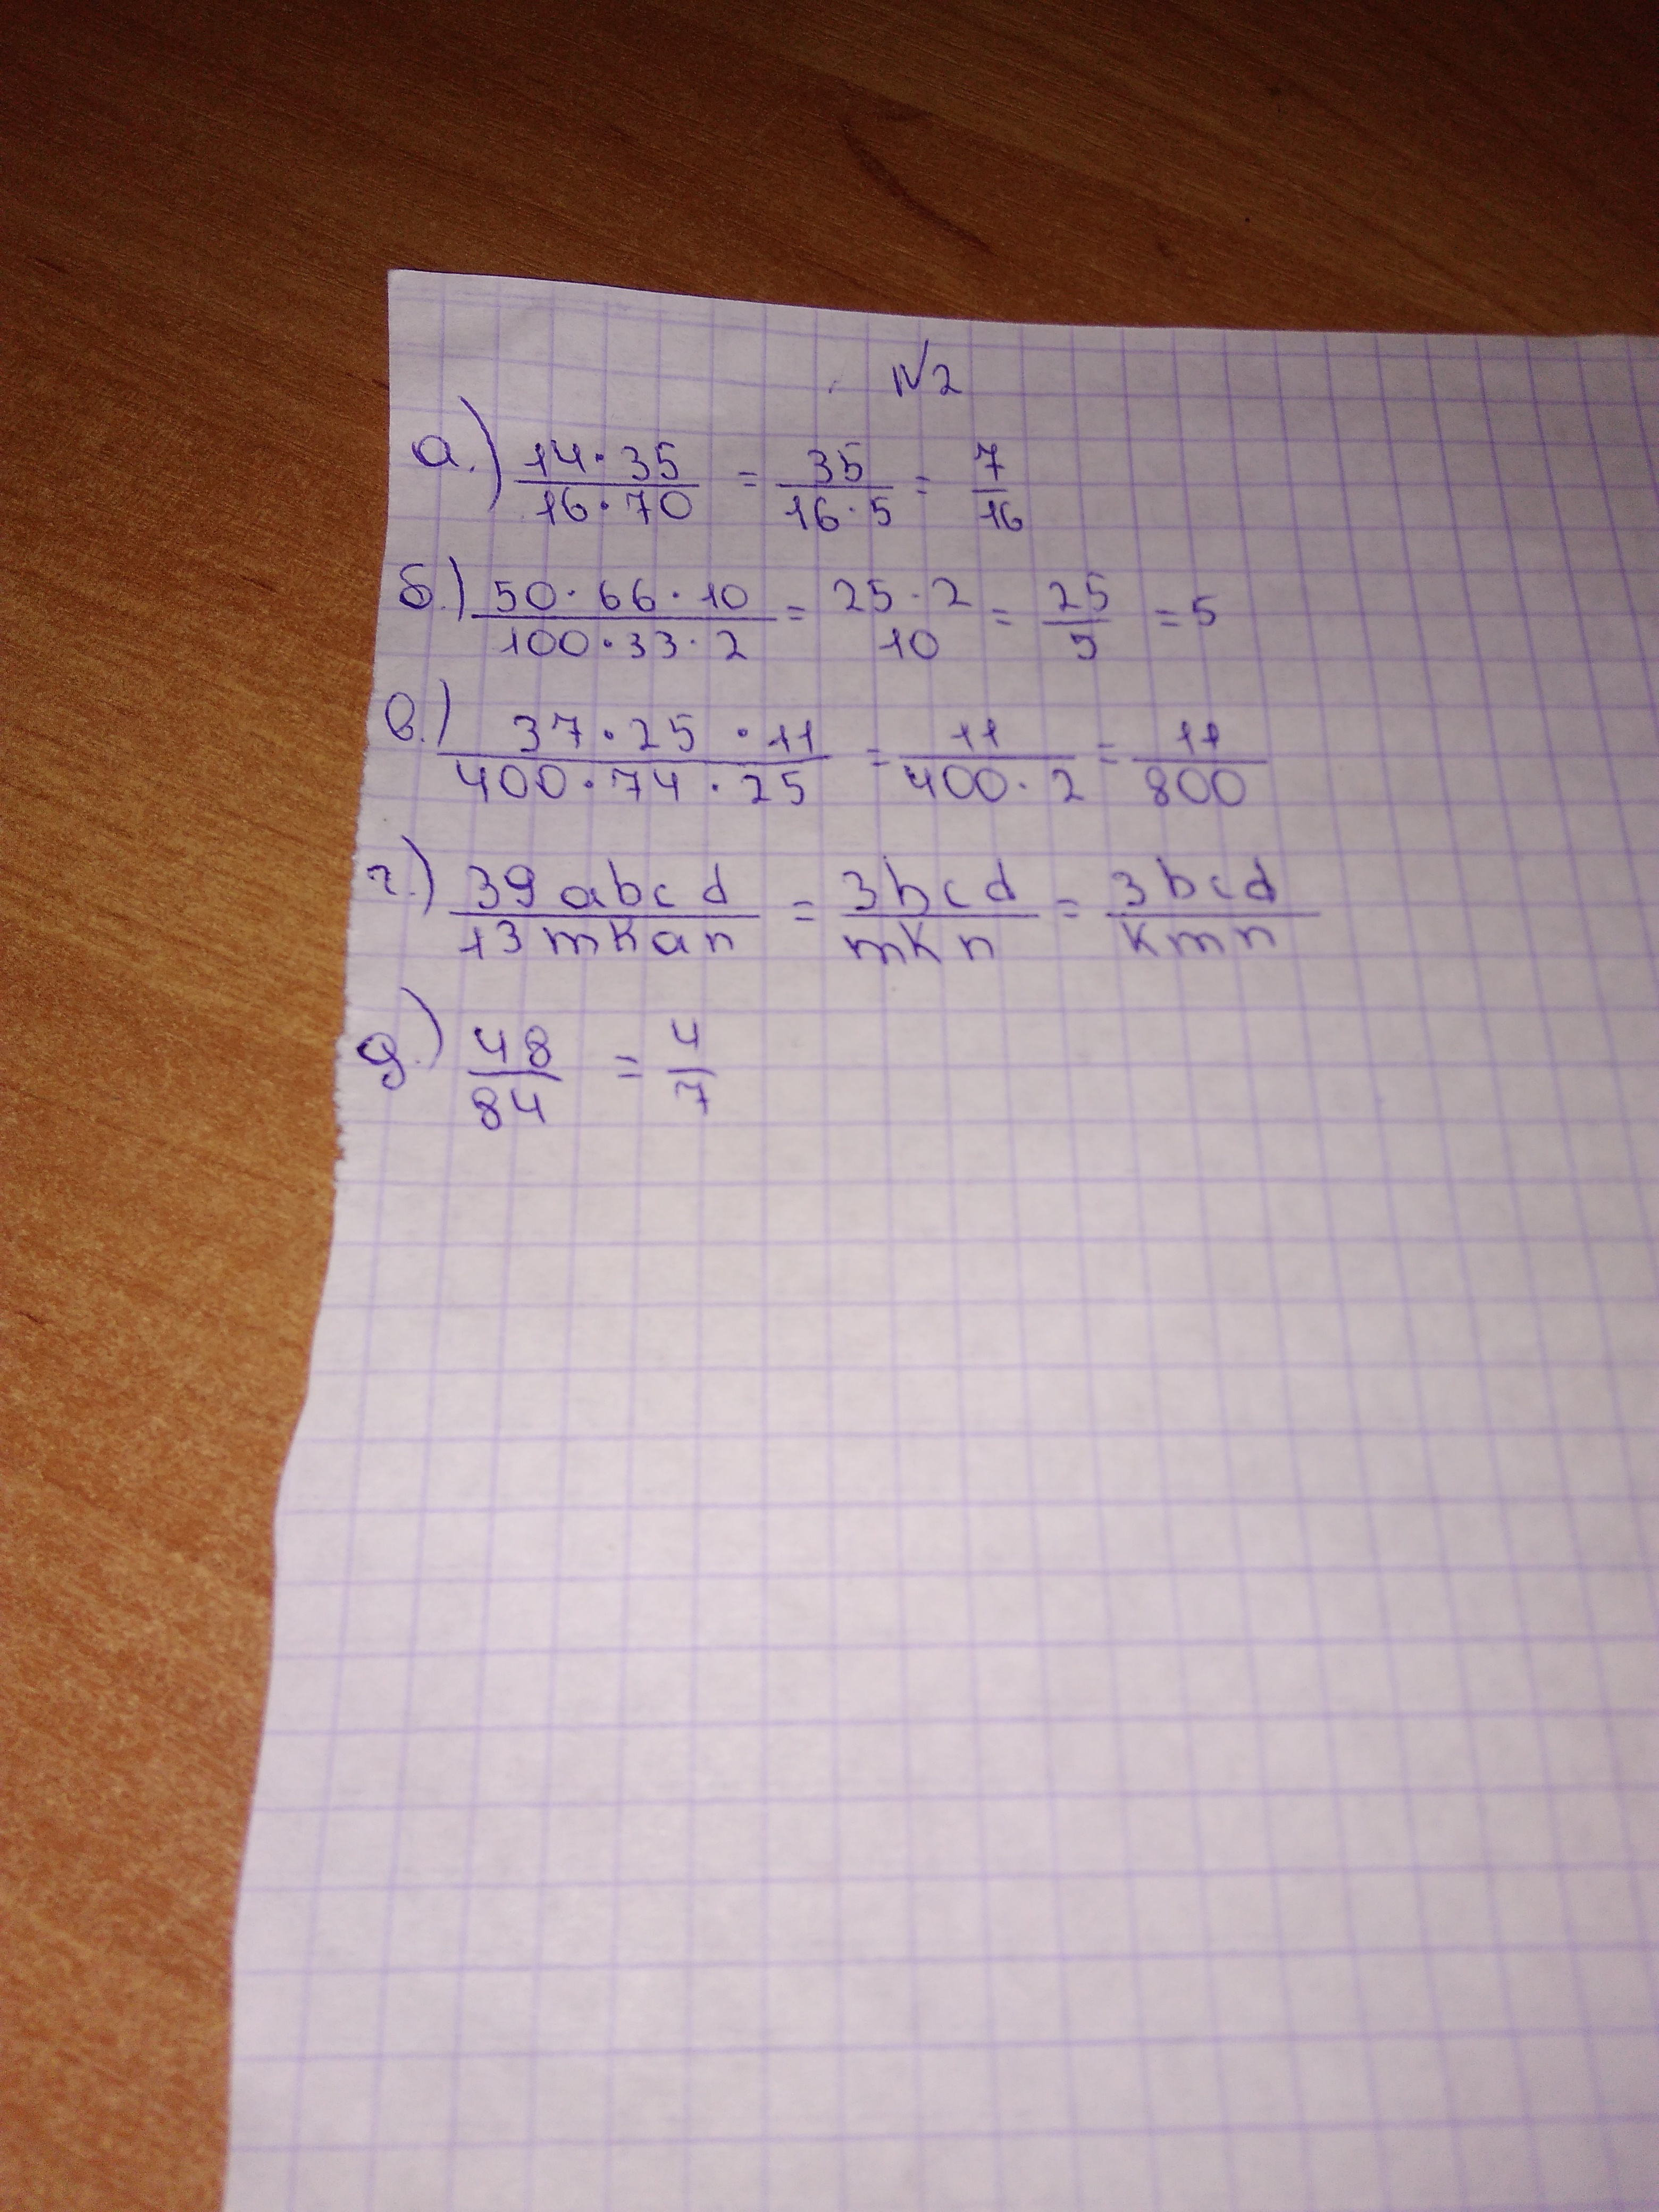 №2
а.) 14·35/16·70 = 35/16·5 = 7/16
б.) 50·66·10/100·33·2 = 25·2/10 = 25/5 = 5
в.) 37·25·11/400·74·25 = 11/400·2 = 11/800
г.) 39abcd/13mkan = 3bcd/mkn = 3bcd/kmn
д.) 48/84 = 4/7